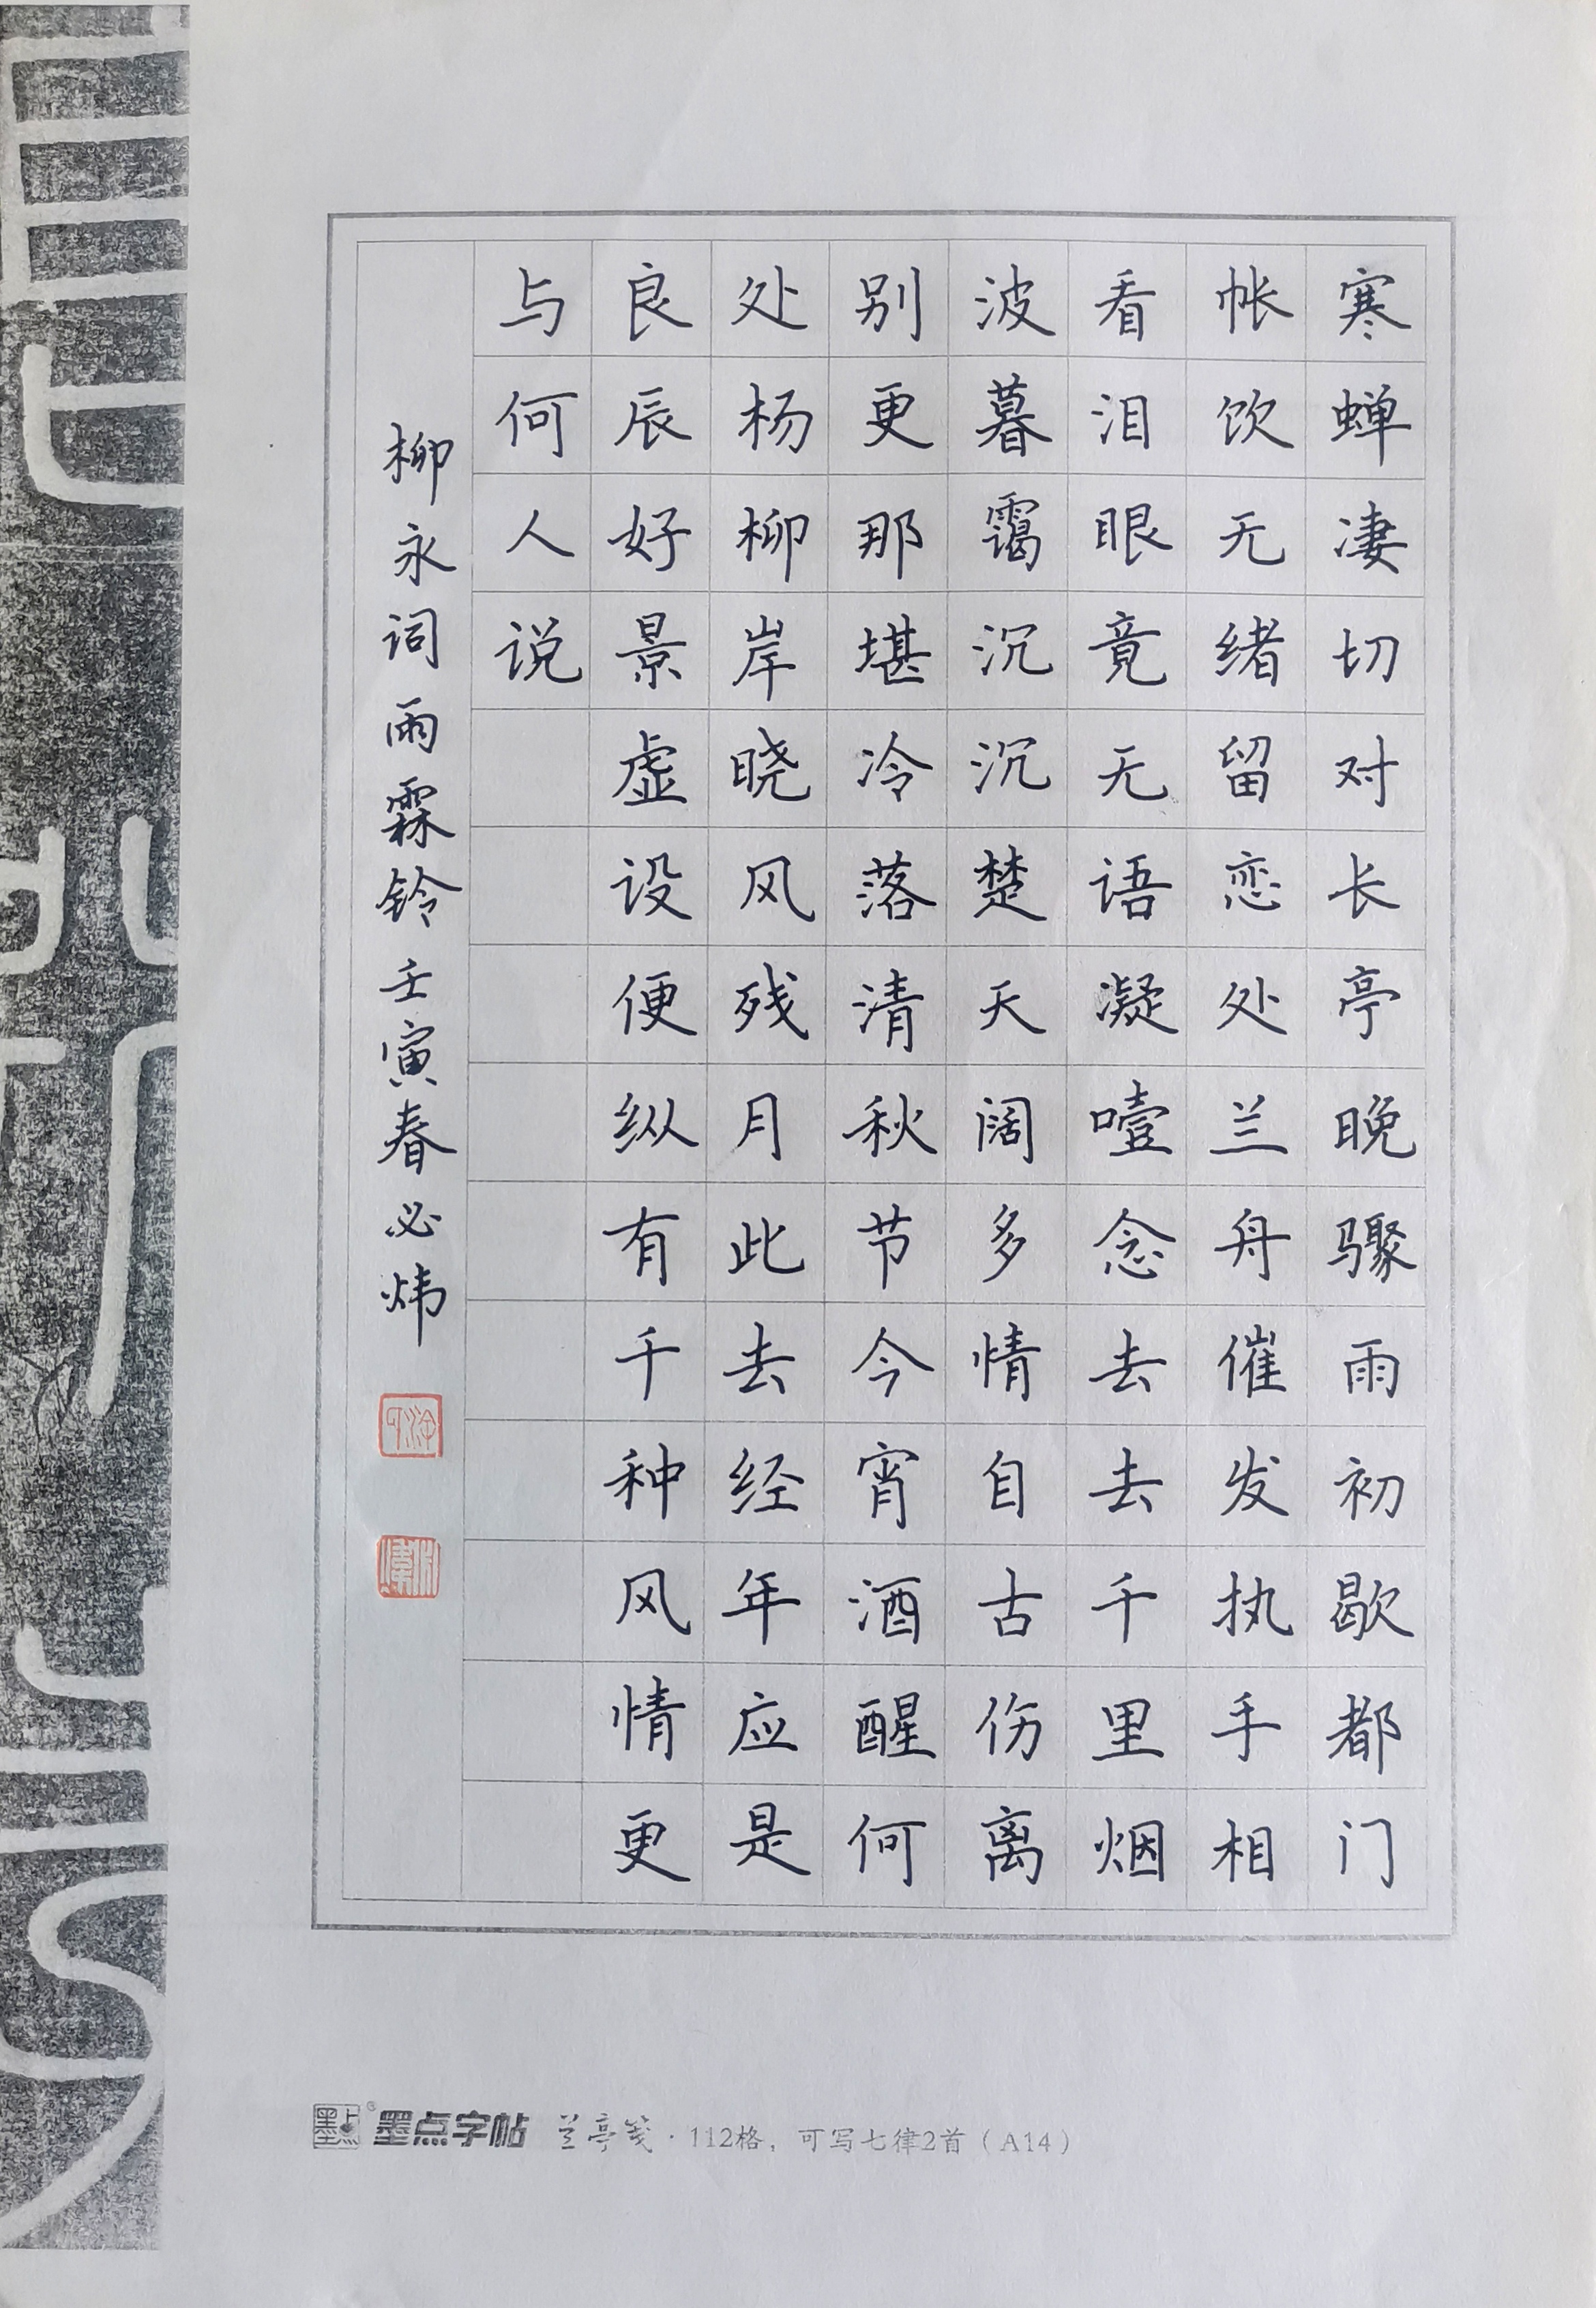 寒蝉凄切对长亭晚骤雨初歇都门
帐饮无绪留恋处兰舟催发执手相
看泪眼竟无语凝噎念去去千里烟
波暮霭沉沉楚天阔多情自古伤离
别更那堪冷落清秋节今宵酒醒何
处杨柳岸晓风残月此去经年应是
良辰好景虚设便纵有千种风情更
与何人说
柳永词雨霖铃壬寅春必炜
墨点字帖 兰亭笺·112格,可写七律2首(A14)